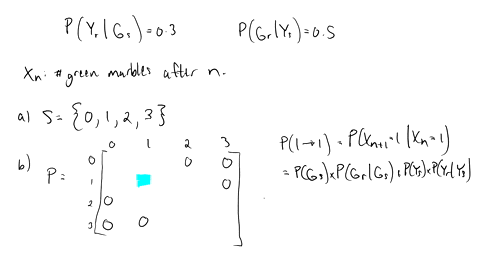 P(Yr|Gs)=0.3 P(Gr|Ys)=0.5
Xn: # green marbles after n.
a) S= {0, 1, 2, 3}
0 1 2 3
b) P= 0 0 0
1 0
2 0
3 0 0
P(1→1) = P(Xn+1=1|Xn=1)
= P(Gs)×P(Gr|Gs)+P(Ys)×P(Yr|Ys)